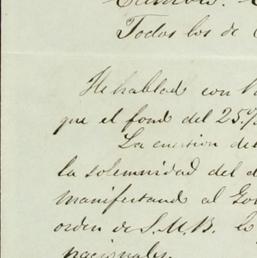 Todos los de
He hablado con
que el fond del 25%
La cuestion de
la solemnidad del d
manifestando al Go
orden de S.M.B. lo
nacionales